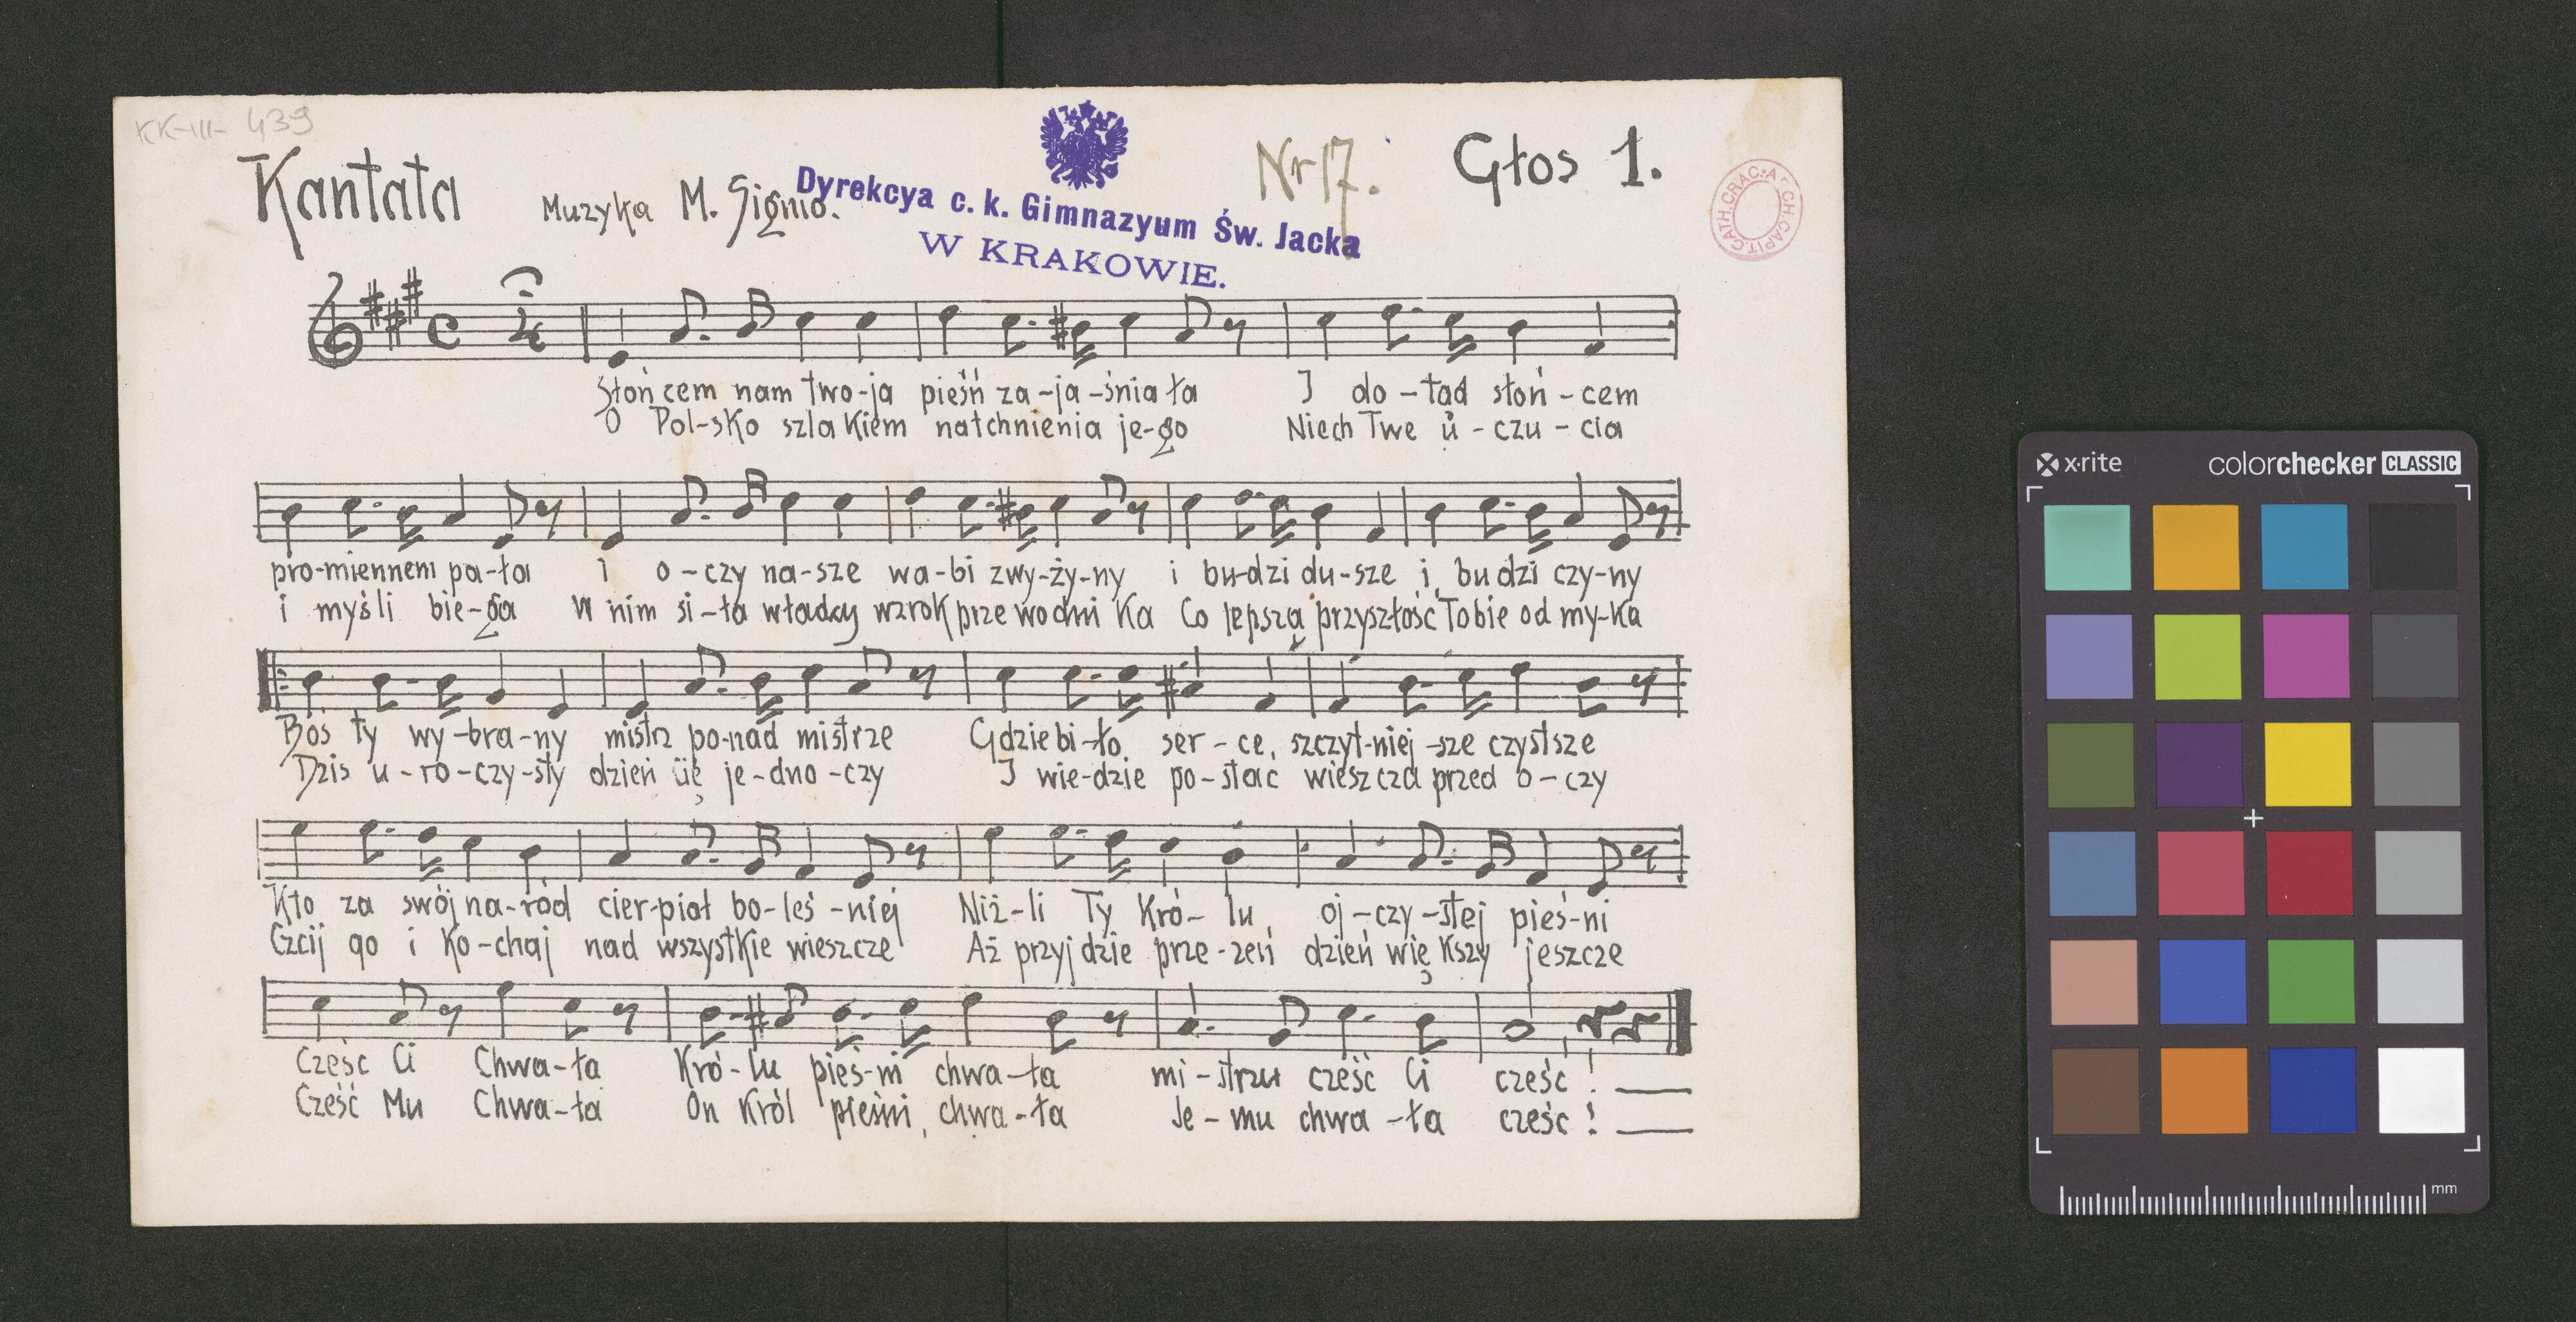 KK-III- 439
Kantata Muzyka M. Signio. Nr 17. Głos 1.
Dyrekcya c. k. Gimnazyum Św. Jacka
W KRAKOWIE.
CATH.CRAC.A CH.CAPIT.
Słoń cem nam two-ja pieśń za-ja-śnia ła I do-tad słoń-cem
O Pol-sko szla kiem natchnienia je-go Niech Twe u-czu-cia
pro-miennem pa-ła i o-czy na-sze wa-bi zwy-ży-ny i bu-dzi du-sze i bu dzi czy-ny
i myśli bie-ga W nim si-ła władzy wzrok prze wodni ka Co lepszą przyszłość Tobie od my-ka
Boś ty wy-bra-ny mistrz po-nad mistrze Gdzie bi-ło ser-ce, szczyt-niej-sze czystsze
Dzis u-ro-czy-sty dzień się je-dno-czy I wie-dzie po-stać wieszcza przed o-czy
Kto za swój na-ród cier-piał bo-leś-niej Niż-li Ty Kró-lu oj-czy-stej pieś-ni
Czcij go i Ko-chaj nad wszystkie wieszcze Aż przyj dzie prze-zeń dzień wię kszy jeszcze
Cześć Ci Chwa-ła Kró-lu pieś-ni chwa-ła mi-strzu cześć Ci cześć!
Cześć Mu Chwa-ła On Król pieśni, chwa-ła Je-mu chwa-ła cześc!
x·rite colorchecker CLASSIC
mm